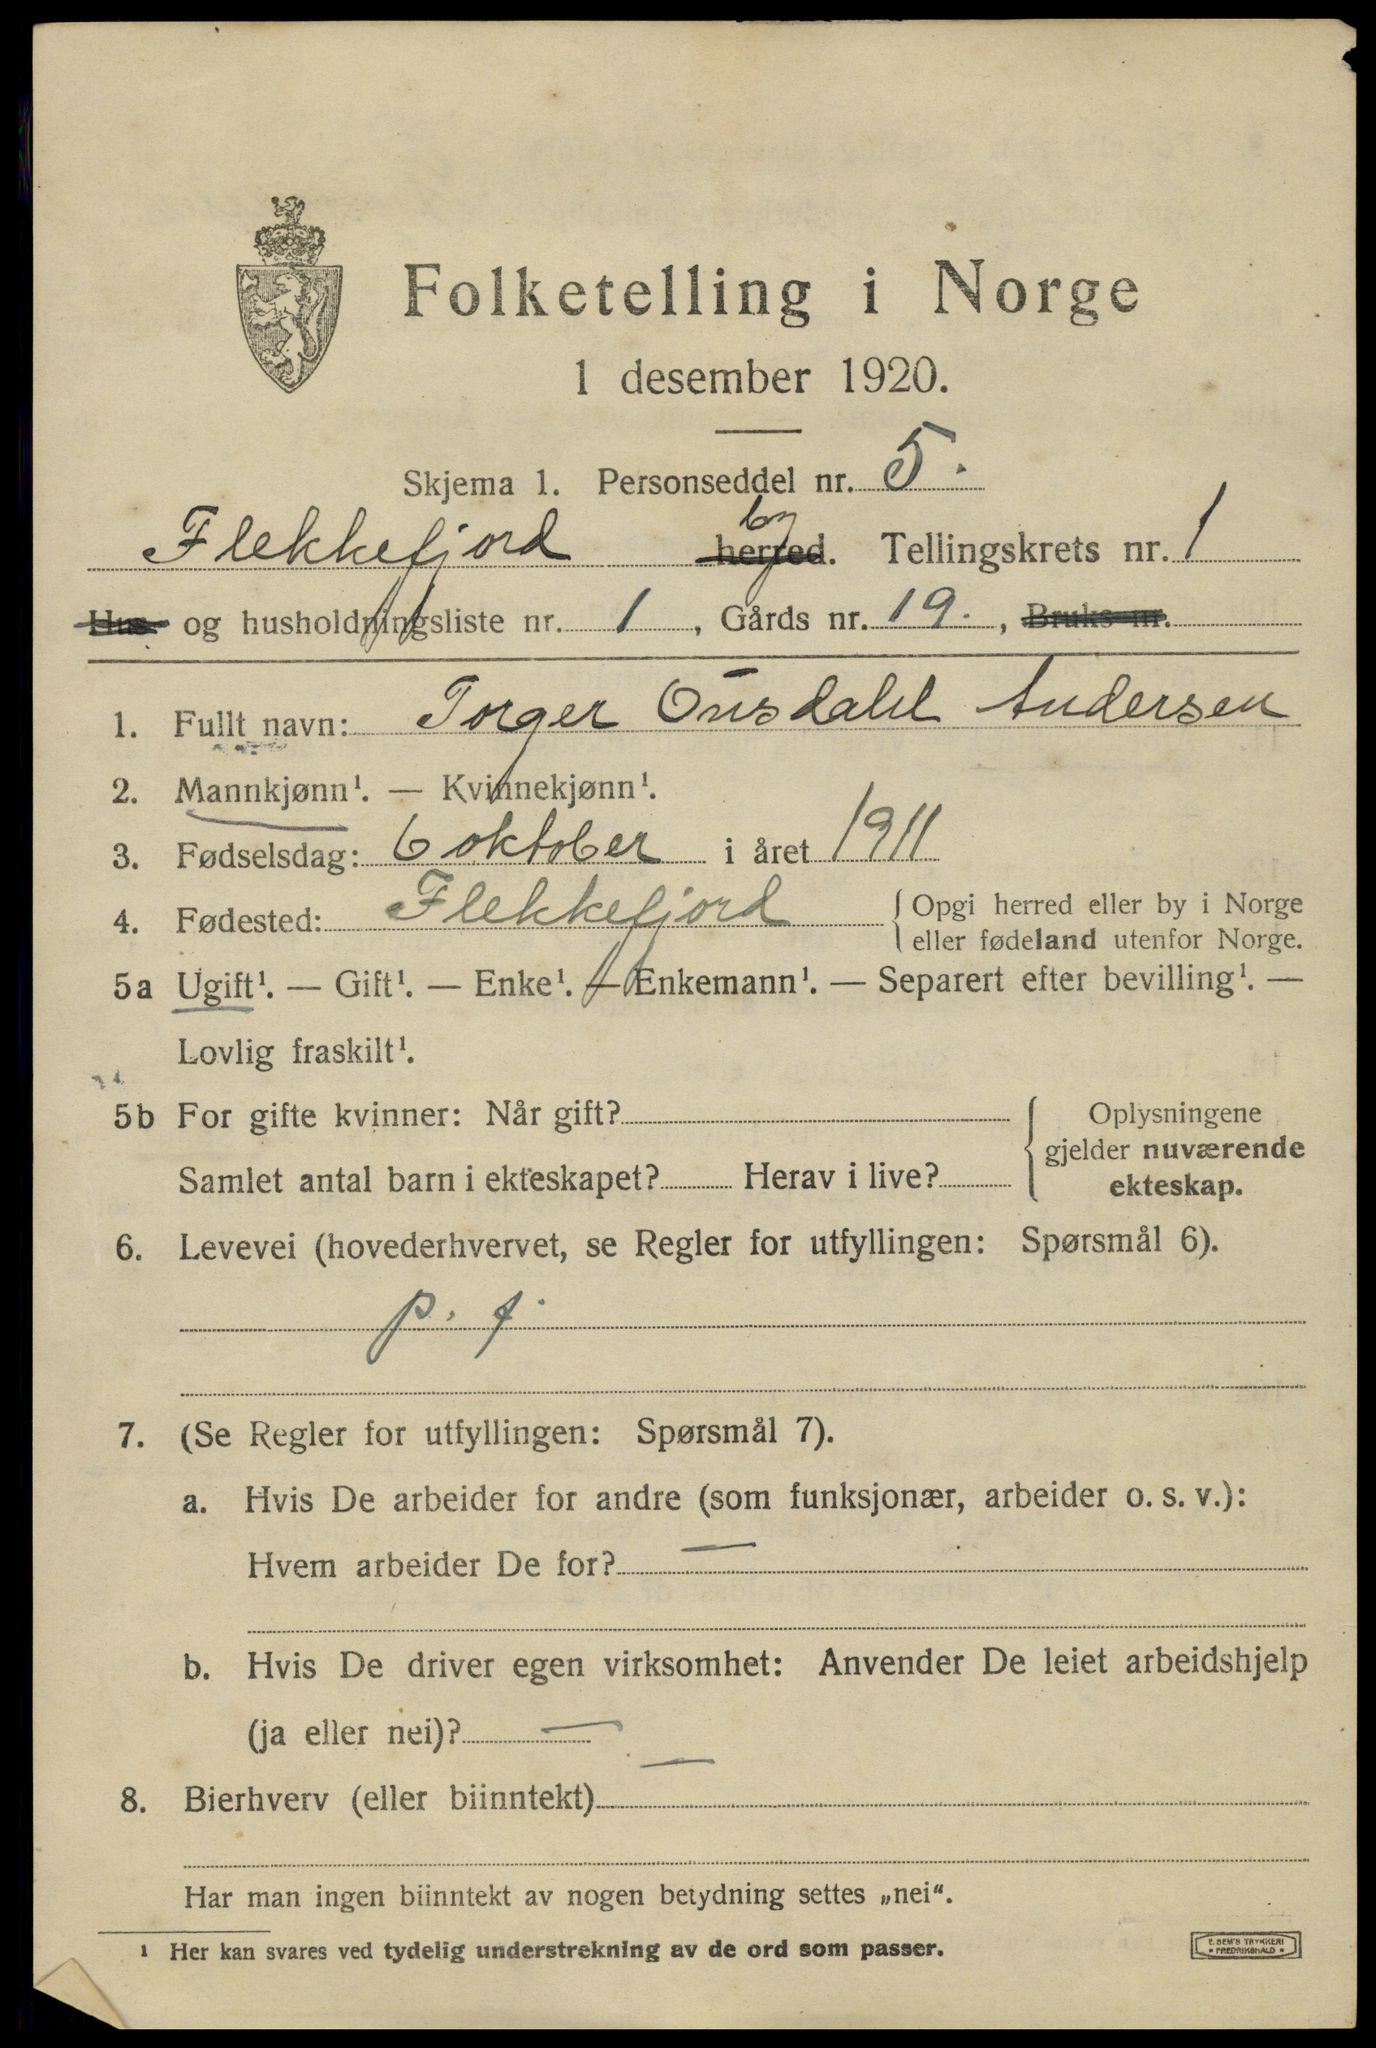 Folketelling i Norge
1 desember 1920.
Skjema 1. Personseddel nr. 5.
Flekkefjord by herred. Tellingskrets nr. 1
Hus- og husholdningsliste nr. 1, Gårds nr. 19., Bruks nr.
1. Fullt navn: Torger Ousdahl Andersen
2. Mannkjønn¹. — Kvinnekjønn¹.
3. Fødselsdag: 6 oktober i året 1911
4. Fødested: Flekkefjord { Opgi herred eller by i Norge
eller fødeland utenfor Norge.
5a Ugift¹. — Gift¹. — Enke¹. — Enkemann¹. — Separert efter bevilling¹. —
Lovlig fraskilt¹.
5b For gifte kvinner: Når gift? { Oplysningene
gjelder nuværende
Samlet antal barn i ekteskapet? Herav i live? ekteskap.
6. Levevei (hovederhvervet, se Regler for utfyllingen: Spørsmål 6).
p. f.
7. (Se Regler for utfyllingen: Spørsmål 7).
a. Hvis De arbeider for andre (som funksjonær, arbeider o. s. v.):
Hvem arbeider De for? —
b. Hvis De driver egen virksomhet: Anvender De leiet arbeidshjelp
(ja eller nei)? —
8. Bierhverv (eller biinntekt) —
Har man ingen biinntekt av nogen betydning settes „nei“.
¹ Her kan svares ved tydelig understrekning av de ord som passer.
E. SEM'S TRYKKERI
* FREDRIKSHALD *